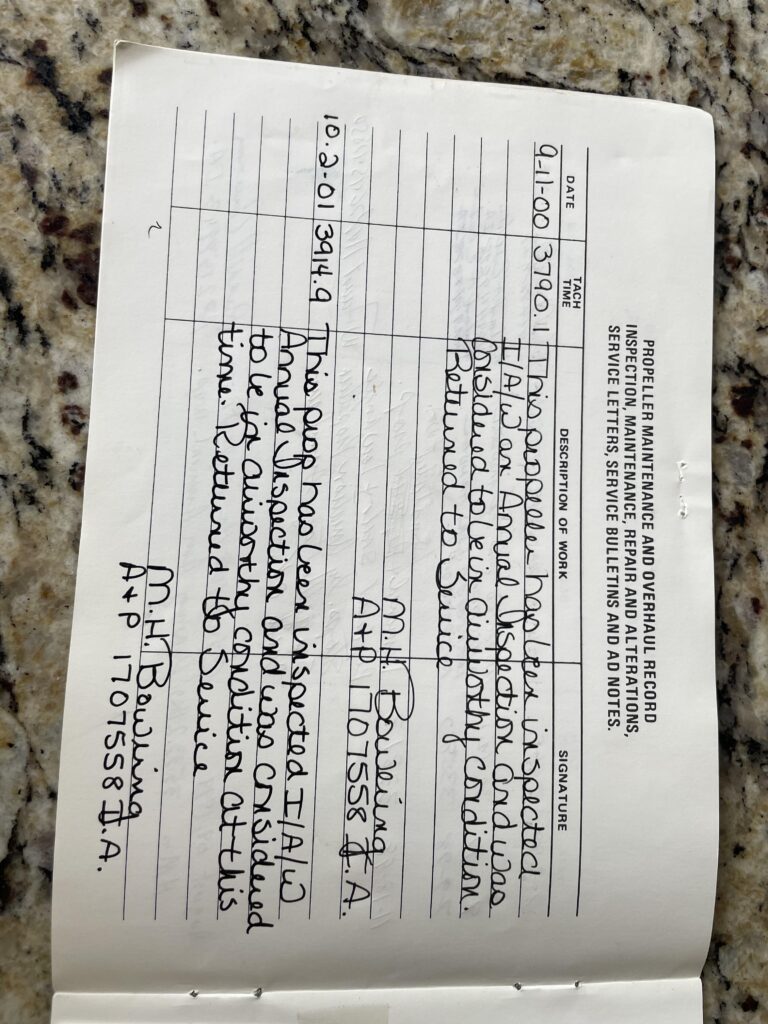 PROPELLER MAINTENANCE AND OVERHAUL RECORD
INSPECTION, MAINTENANCE, REPAIR AND ALTERATIONS,
SERVICE LETTERS, SERVICE BULLETINS AND AD NOTES.
DATE TACH TIME DESCRIPTION OF WORK SIGNATURE
9-11-00 3790.1 This propeller has been inspected
I/A/W an Annual Inspection and was
Considered to be in airworthy condition.
Returned to Service
M.H. Bowling
A+P 1707558 I.A.
10.2-01 3914.9 This prop has been inspected I/A/W
Annual Inspection and was considered
to be in airworthy condition at this
time. Returned to Service
M.H. Bowling
A+P 1707558 I.A.
2